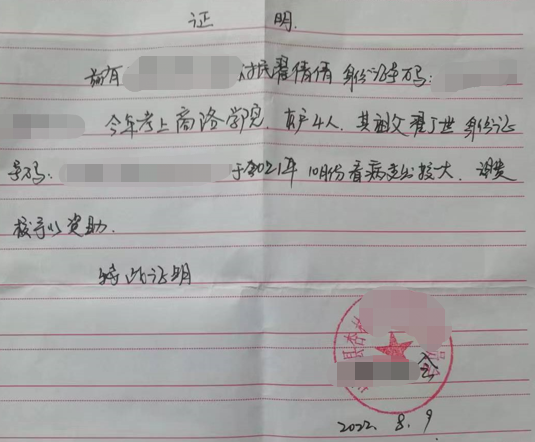 证 明
兹有 村民翟倩倩 身份证号码:
今年考上商洛学院,在户4人,其祖父翟丁世 身份证
号码: 于2021年10月份看病支出较大,请贵
校予以资助.
特此证明
县 会
2022.8.9